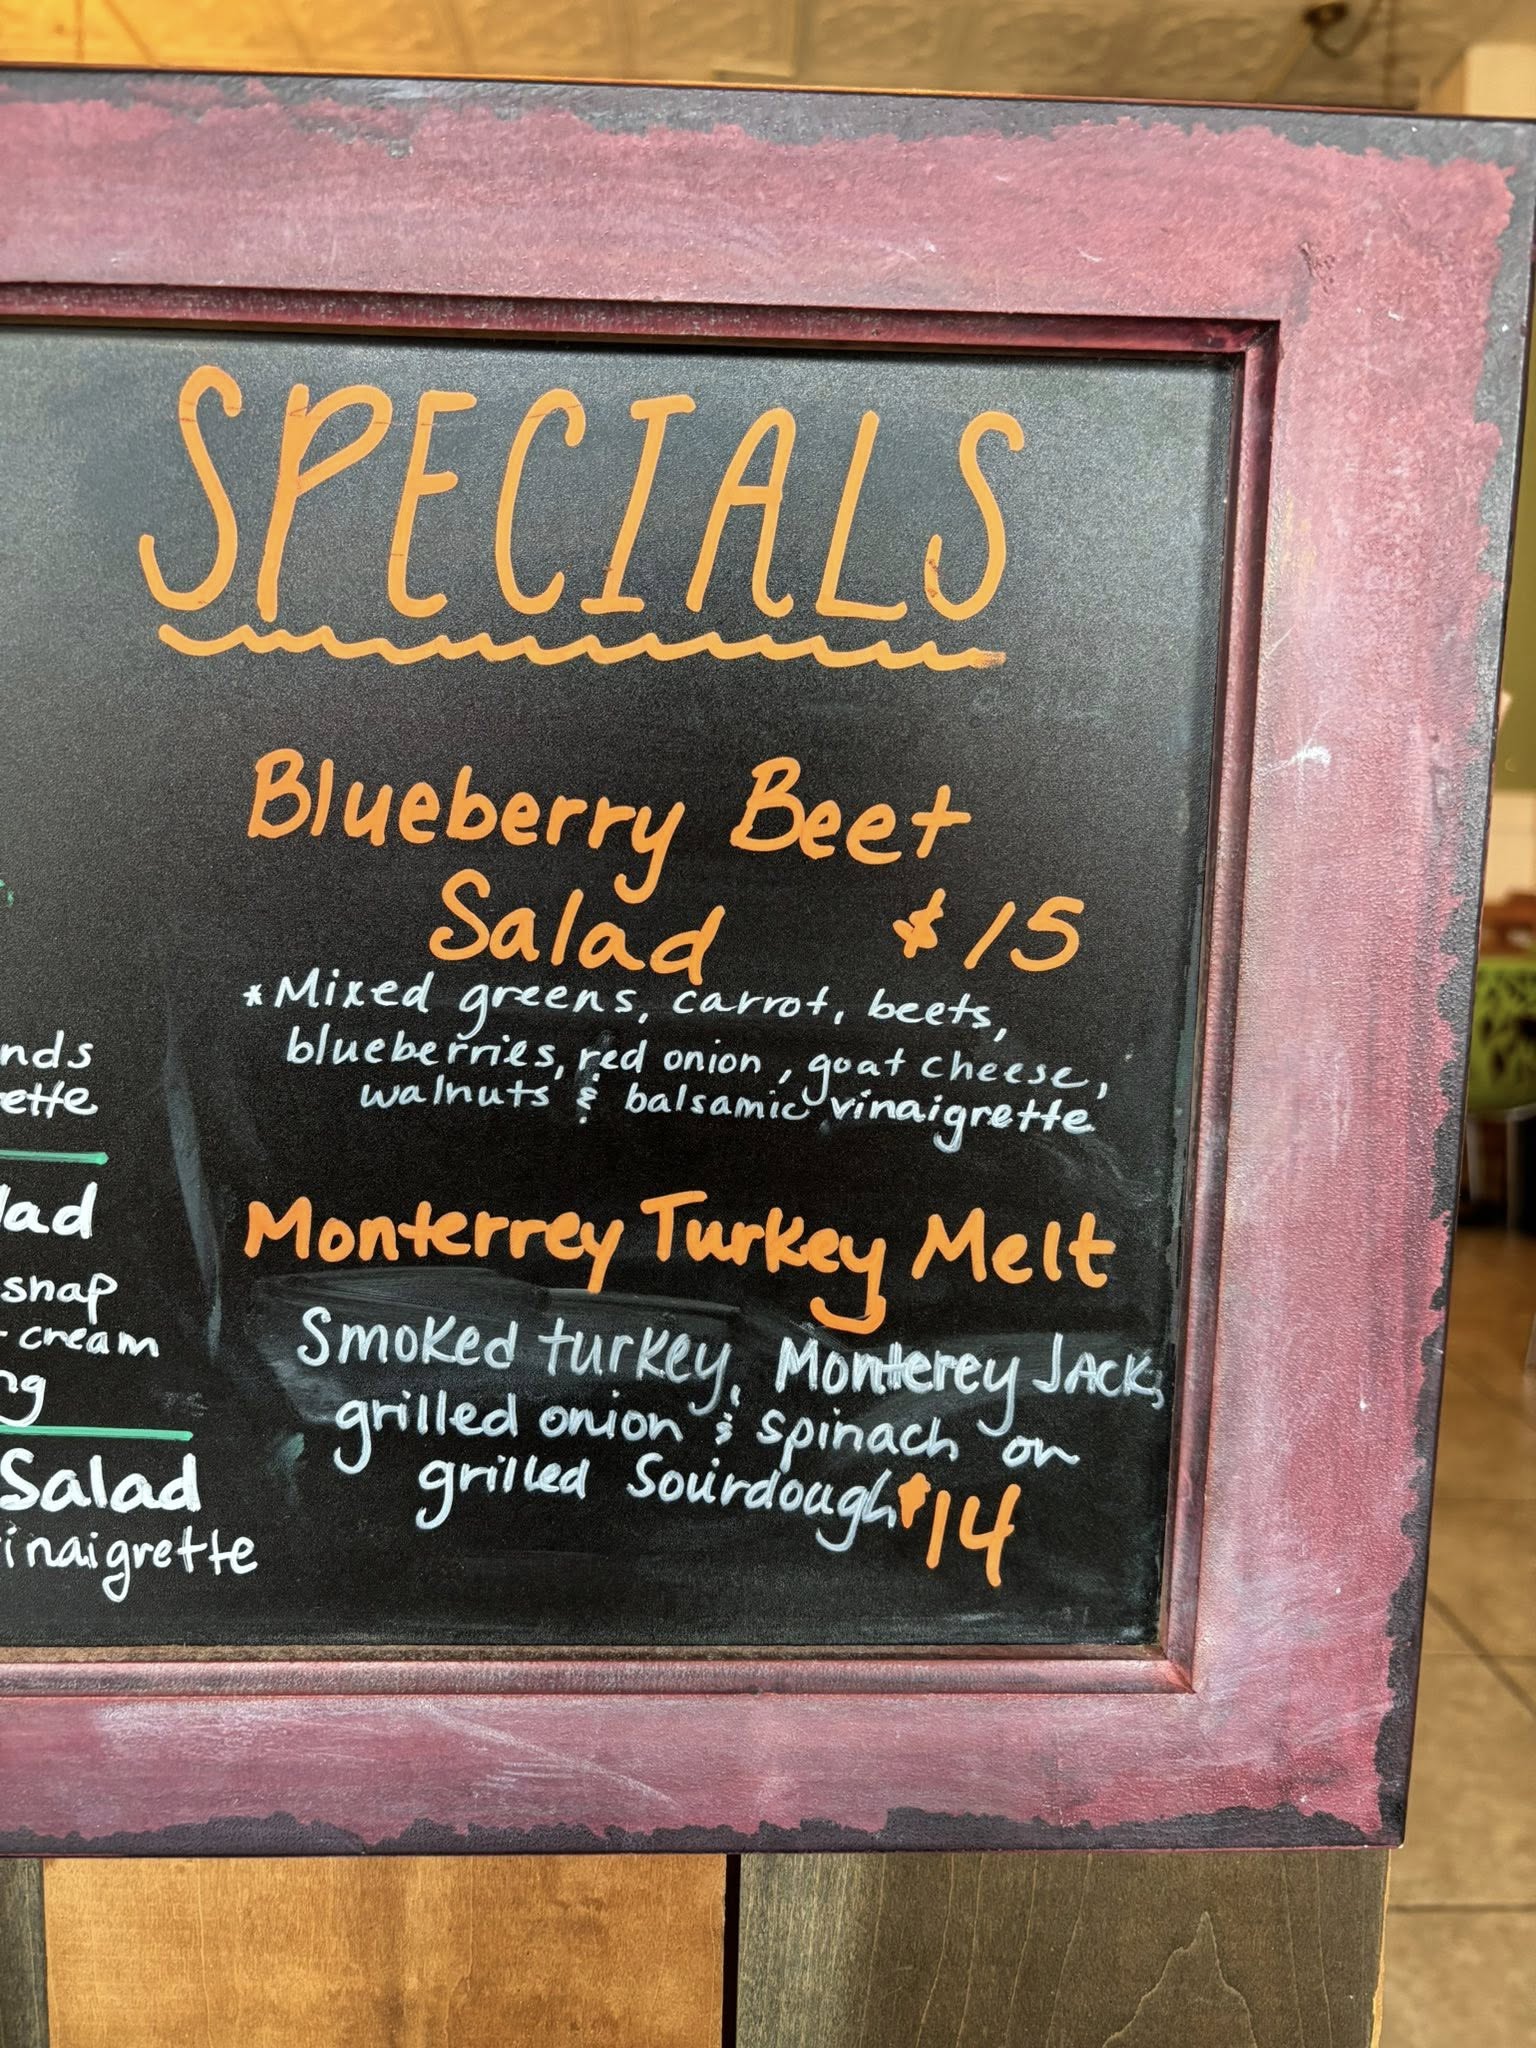 SPECIALS
Blueberry Beet
Salad $15
*Mixed greens, carrot, beets,
blueberries, red onion, goat cheese,
walnuts & balsamic vinaigrette
Monterrey Turkey Melt
Smoked turkey, Monterey Jack,
grilled onion & spinach on
grilled Sourdough $14
nds
ette
lad
snap
cream
ng
Salad
inaigrette